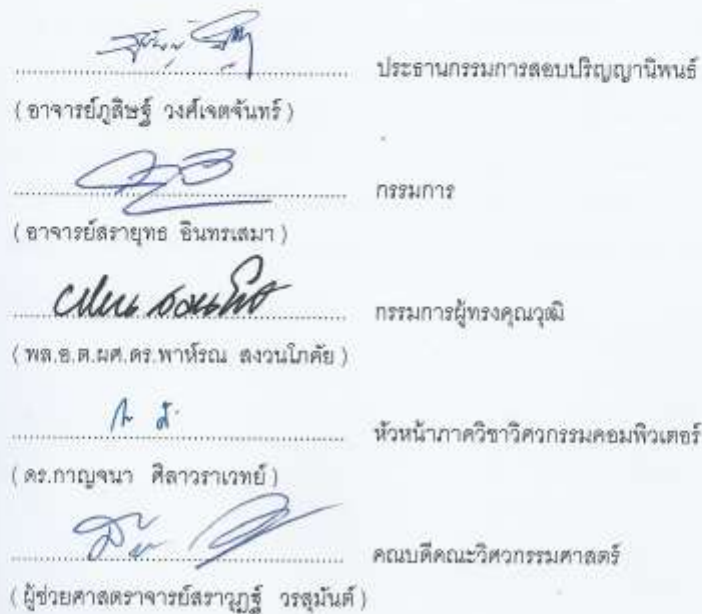 ประธานกรรมการสอบปริญญานิพนธ์
( อาจารย์ภูสิษฐ์ วงศ์เจตจันทร์ )
กรรมการ
( อาจารย์สรายุทธ อินทรเสมา )
กรรมการผู้ทรงคุณวุฒิ
( พล.อ.ต.ผศ.ดร.พาห์รณ สงวนโภคัย )
หัวหน้าภาควิชาวิศวกรรมคอมพิวเตอร์
( ดร.กาญจนา ศิลาวราเวทย์ )
คณบดีคณะวิศวกรรมศาสตร์
( ผู้ช่วยศาสตราจารย์สราวุฏฐ์ วรสุมันต์ )